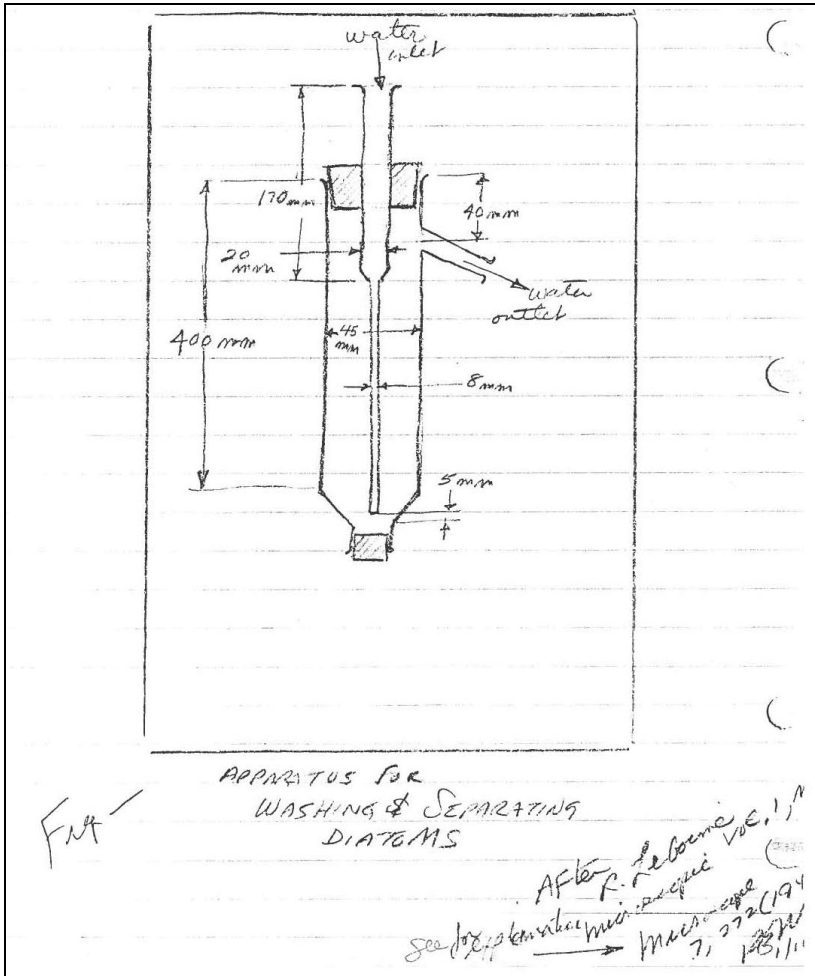 water
inlet
170 mm
40 mm
20
mm
water
outlet
400 mm
45
mm
8 mm
5 mm
APPARATUS FOR
WASHING & SEPARATING
DIATOMS
After
Microscopie Vol. 1,
see for explanation Microscope
7, 272 (194